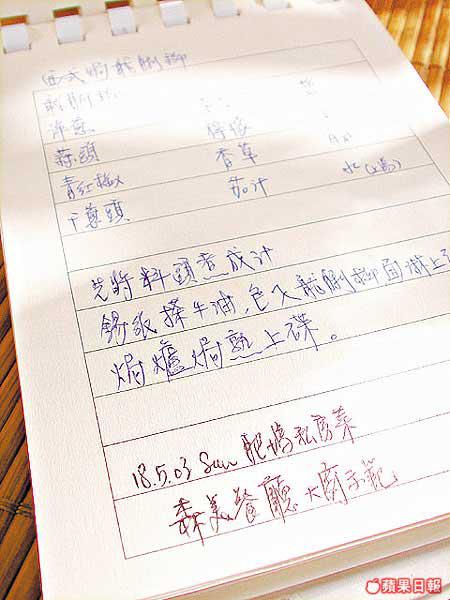 西式焗龍脷柳
洋蔥
蒜頭 檸檬
青紅椒 香草
干蔥頭 茄汁 水(上湯)
先將料頭煮成汁
錫紙搽牛油,包入龍脷柳面淋上
焗爐焗熟上碟。
18.5.03 Sun 肥媽私房菜
森美餐廳大廚示範
蘋果日報